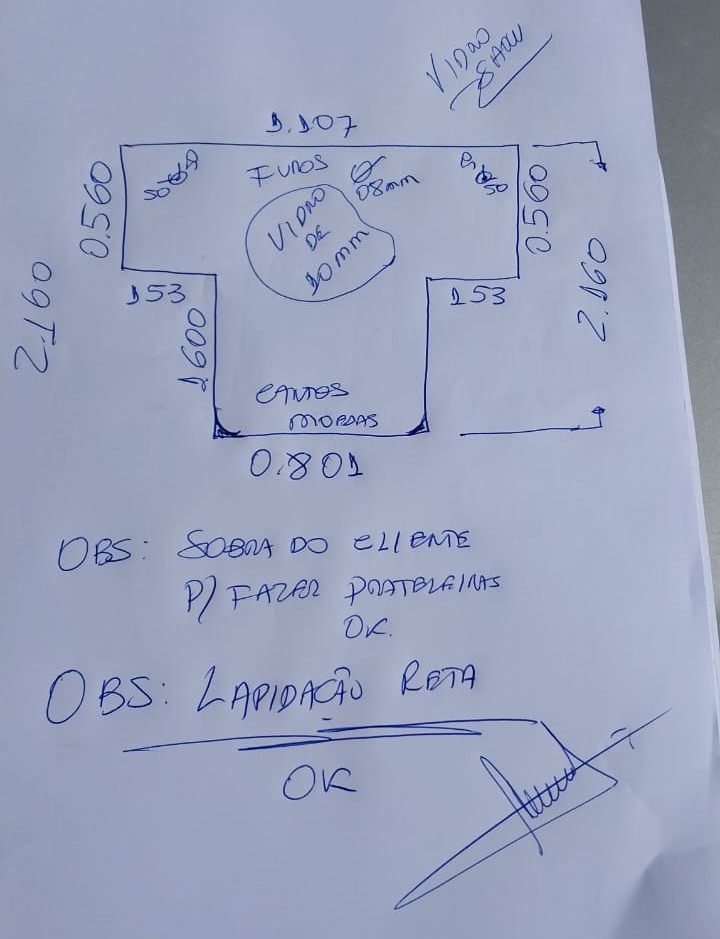 VIDRO
1.107
0.560
50
50
FUROS
Ø 08mm
50
0.560
VIDRO
DE
10mm
153
153
2.160
2.160
1600
CANTOS
MOEDAS
0.801
OBS: SOBRA DO CLIENTE
P/ FAZER PRATELEIRAS
OK.
OBS: LAPIDAÇÃO RETA
OK